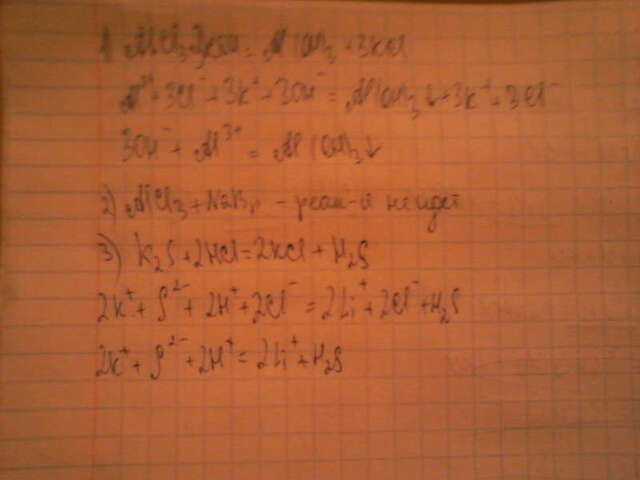 1) AlCl₃+3KOH = Al(OH)₃ + 3KCl
Al³⁺+3Cl⁻+3K⁺+3OH⁻ = Al(OH)₃↓+3K⁺+3Cl⁻
3OH⁻ + Al³⁺ = Al(OH)₃↓
2) AlCl₃ + NaBr - реак-я не идет
3) K₂S+2HCl=2KCl+H₂S
2K⁺ + S²⁻ + 2H⁺+2Cl⁻ = 2Li⁺+2Cl⁻+H₂S
2K⁺ + S²⁻ + 2H⁺ = 2Li⁺ + H₂S